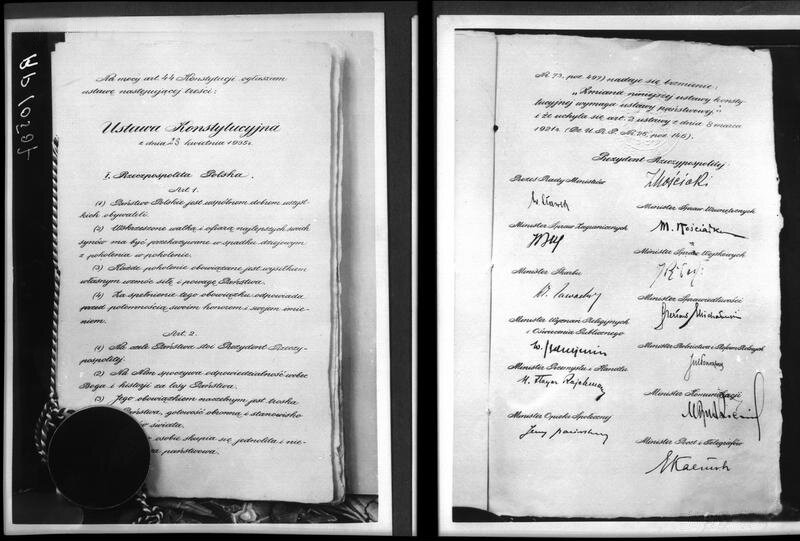 Na mocy art. 44 Konstytucji ogłaszam
ustawę następującej treści:
Ustawa Konstytucyjna
z dnia 23 kwietnia 1935 r.
I. Rzeczpospolita Polska.
Art. 1.
(1) Państwo Polskie jest wspólnem dobrem wszyst-
kich obywateli.
(2) Wskrzeszone walką i ofiarą najlepszych swoich
synów ma być przekazywane w spadku dziejowym
z pokolenia w pokolenie.
(3) Każde pokolenie obowiązane jest wysiłkiem
własnym wzmóc siłę i powagę Państwa.
(4) Za spełnienie tego obowiązku odpowiada
przed potomnością swoim honorem i swojem imie-
niem.
Art. 2.
(1) Na czele Państwa stoi Prezydent Rzeczy-
pospolitej.
(2) Na Nim spoczywa odpowiedzialność wobec
Boga i historji za losy Państwa.
(3) Jego obowiązkiem naczelnym jest troska
Państwa, gotowość obronną i stanowisko
świata.
osobie skupia się jednolita i nie-
państwowa.
Nr. 73, poz. 497) nadaje się brzmienie:
"Zmiana niniejszej ustawy konsty-
tucyjnej wymaga ustawy państwowej."
i że uchyla się art. 2 ustawy z dnia 8 marca
1921 r. (Dz. U. R. P. Nr. 25, poz. 146).
Prezydent Rzeczypospolitej
I Mościcki
Prezes Rady Ministrów
W Sławek
Minister Spraw Wewnętrznych
M. Kościałkowski
Minister Spraw Zagranicznych
Minister Spraw Wojskowych
Minister Skarbu
Minister Sprawiedliwości
Czesław Michałowski
Minister Wyznań Religijnych
i Oświecenia Publicznego
W. Jędrzejewicz
Minister Rolnictwa i Reform Rolnych
Minister Przemysłu i Handlu
H. Floyar Rajchman
Minister Komunikacji
Minister Opieki Społecznej
Jerzy Paciorkowski
Minister Poczt i Telegrafów
E Kaliński